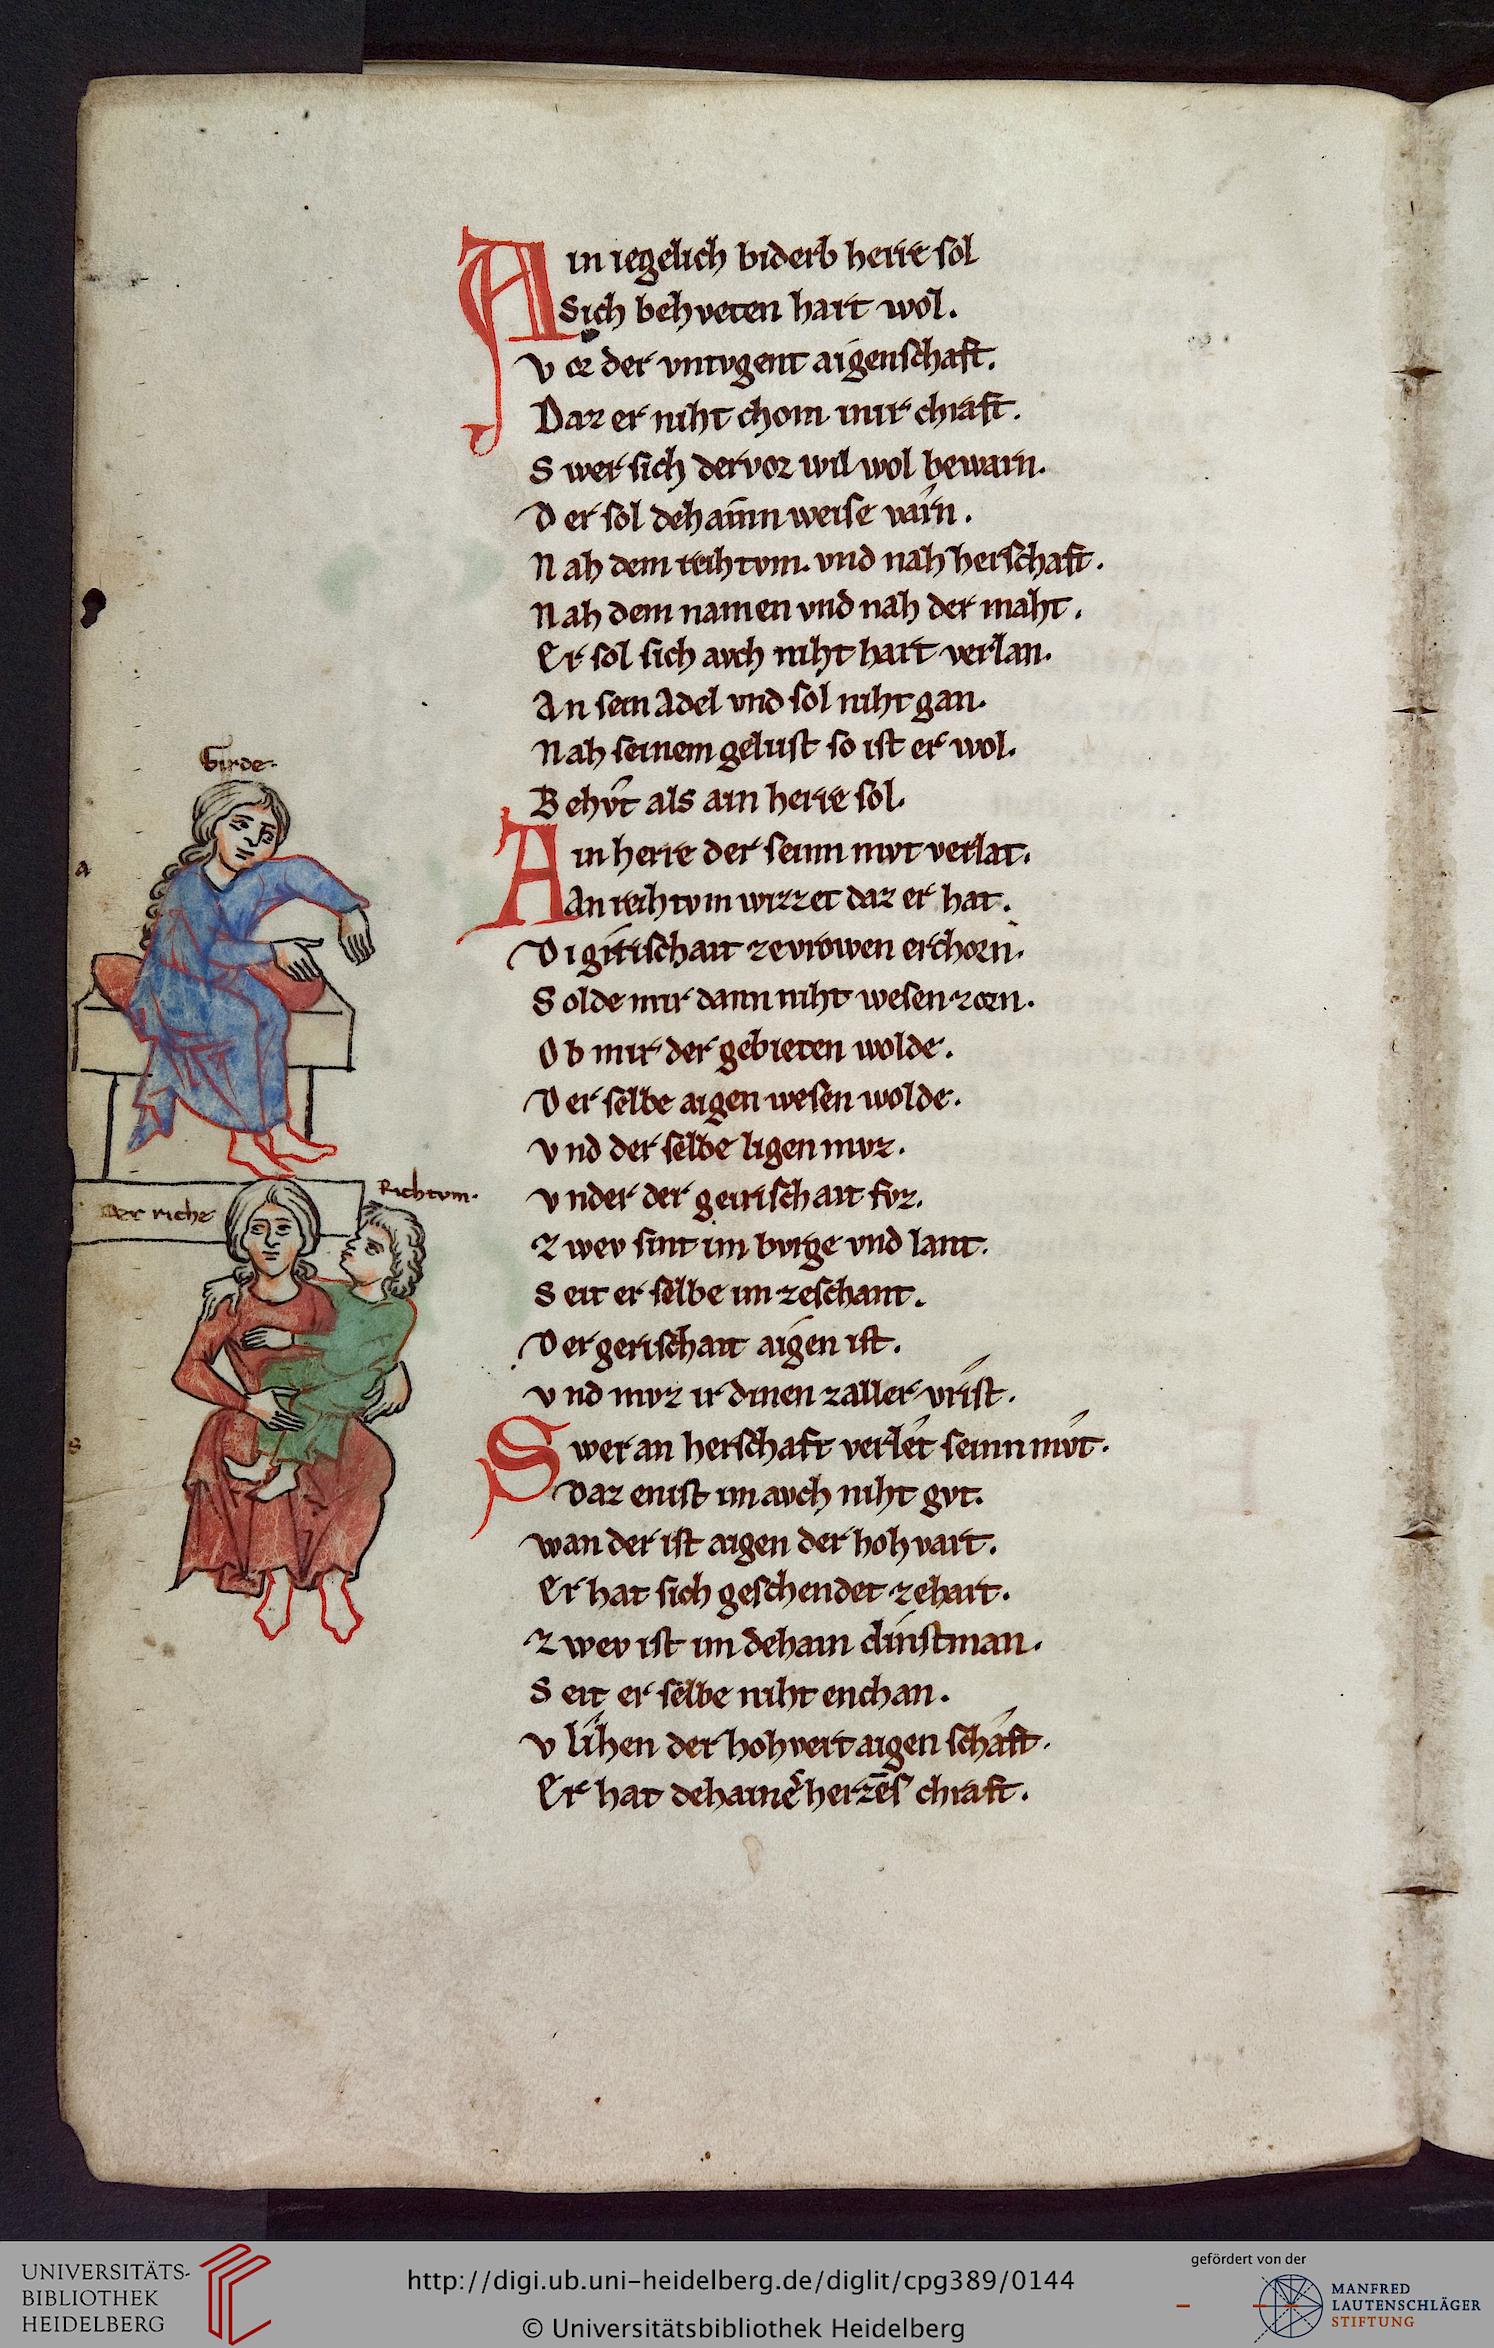 Ain iegelich biderb herre sol
Sich behveten hart wol.
Vor der vntvgent aigenschaft.
Daz er niht chom inir chraft.
Swer sich dervor wil wol bewarn.
Der sol dehainn weise varn.
Nah dem reihtvm. vnd nah herschaft.
Nah dem namen vnd nah der maht.
Er sol sich avch niht hart verlan.
An sein Adel vnd sol niht gan.
Nah seinem gelust so ist er wol.
Behvt als ain herre sol.
Girde.
Ain herre der seinn mvt verlat.
a
An reihtvm wizzet daz er hat.
Di girischait zevrowen erchorn.
Solde mir dann niht wesen zorn.
Ob mir der gebieten wolde.
Der selbe aigen wesen wolde.
Vnd der selbe ligen mvz.
Richtvm.
Vnder der geirischait fvz.
Der riche
Zwev sint im bvrge vnd lant.
Seit er selbe im zeschant.
Der gerischait aigen ist.
Vnd mvz ir dinen zaller vrist.
Swer an herschaft verlet seinn mvt.
s
Daz enist im avch niht gvt.
Wan der ist aigen der hohvart.
Er hat sich geschendet zehart.
Zwev ist im dehain dinstman.
Seit er selbe niht enchan.
Vlihen der hohvert aigen schaft.
Er hat dehainer herzēs chraft.
UNIVERSITÄTS-
BIBLIOTHEK
HEIDELBERG
http://digi.ub.uni-heidelberg.de/diglit/cpg389/0144
© Universitätsbibliothek Heidelberg
gefördert von der
MANFRED
LAUTENSCHLÄGER
STIFTUNG